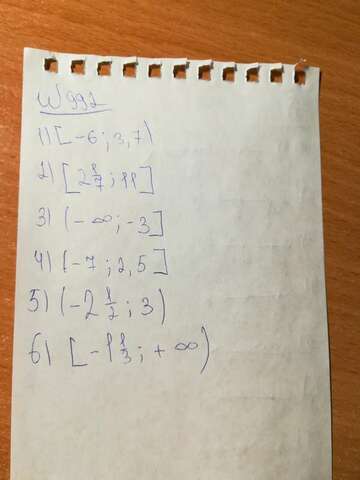 № 992
1) [-6; 3,7)
2) [2 1/7; 11]
3) (-∞; -3]
4) (-7; 2,5]
5) (-2 1/2; 3)
6) [-1 1/3; +∞)